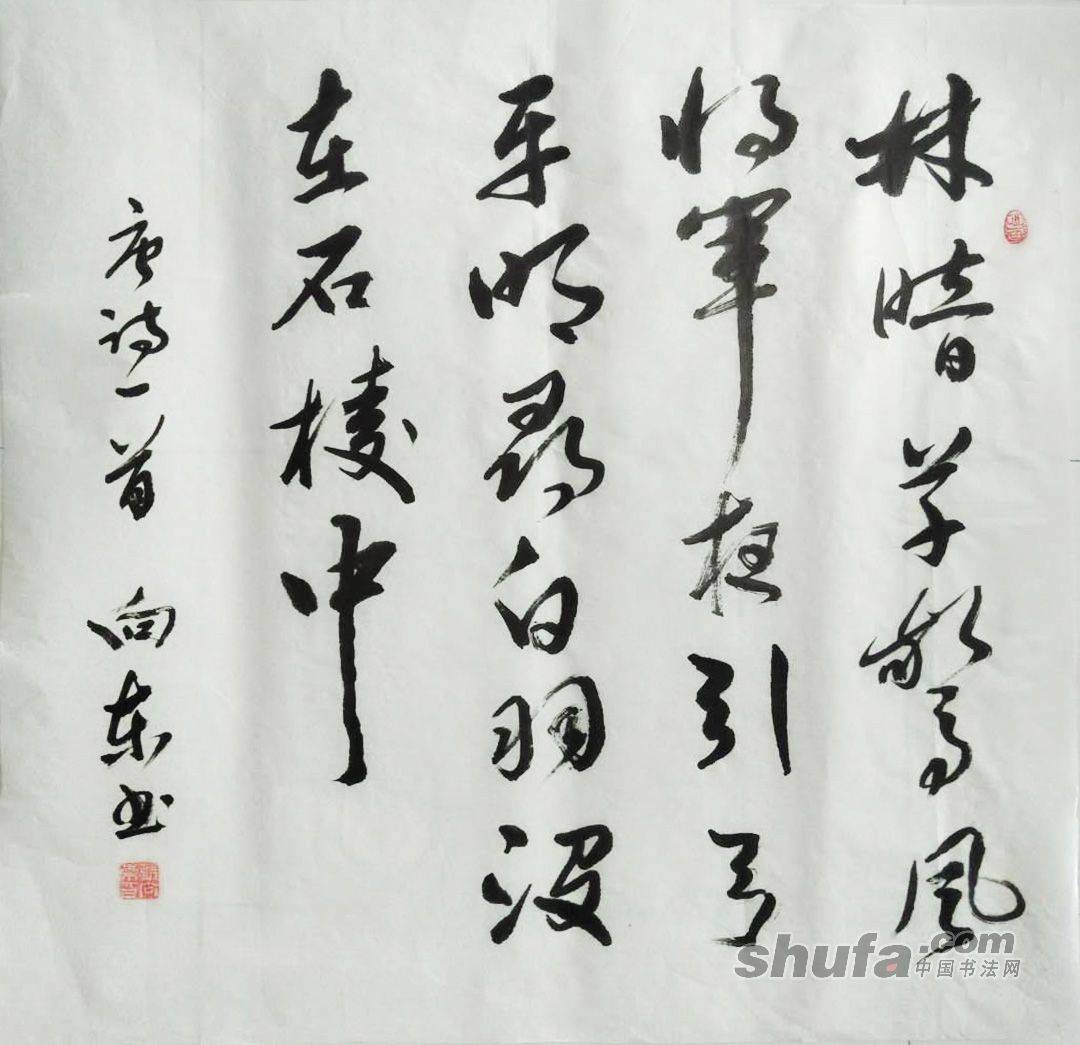 林暗草驚風
将軍夜引弓
平明尋白羽没
在石棱中
唐诗一首 向東书
shufa.com
中国书法网